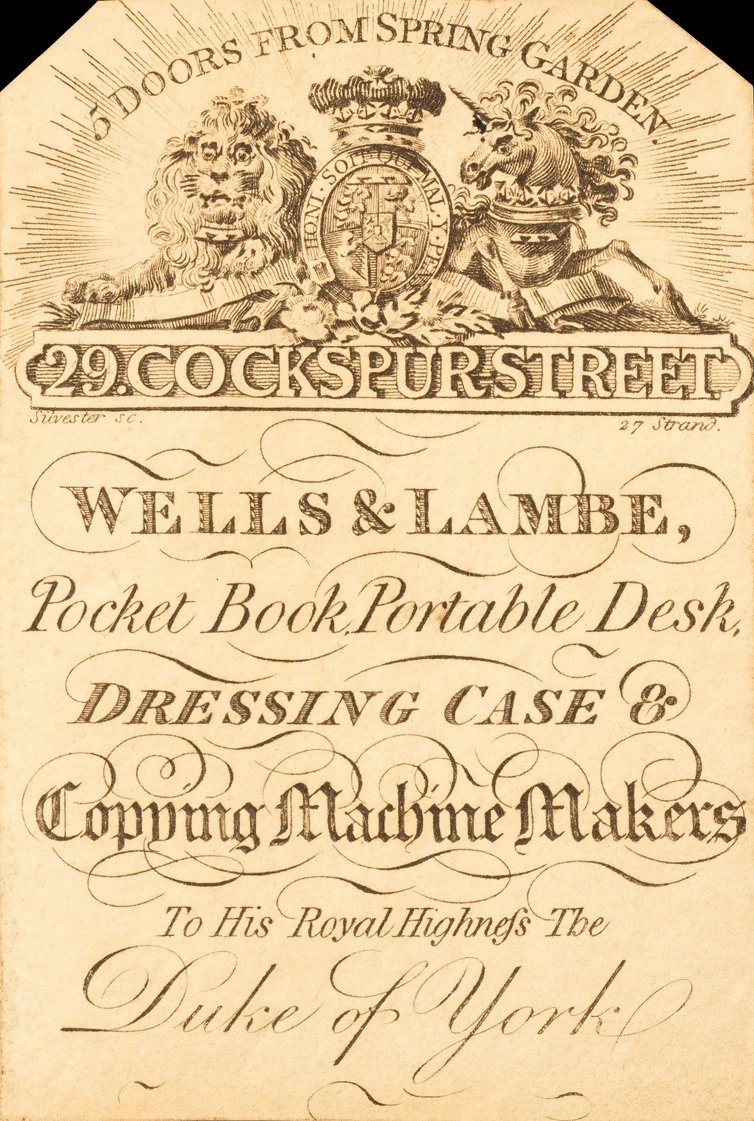 5 DOORS FROM SPRING GARDEN.
HONI· SOIT QUI MAL· Y· PE
29. COCKSPUR STREET
Silvester sc. 27 Strand.
WELLS & LAMBE,
Pocket Book, Portable Desk,
DRESSING CASE &
Copying Machine Makers
To His Royal Highneſs The
Duke of York